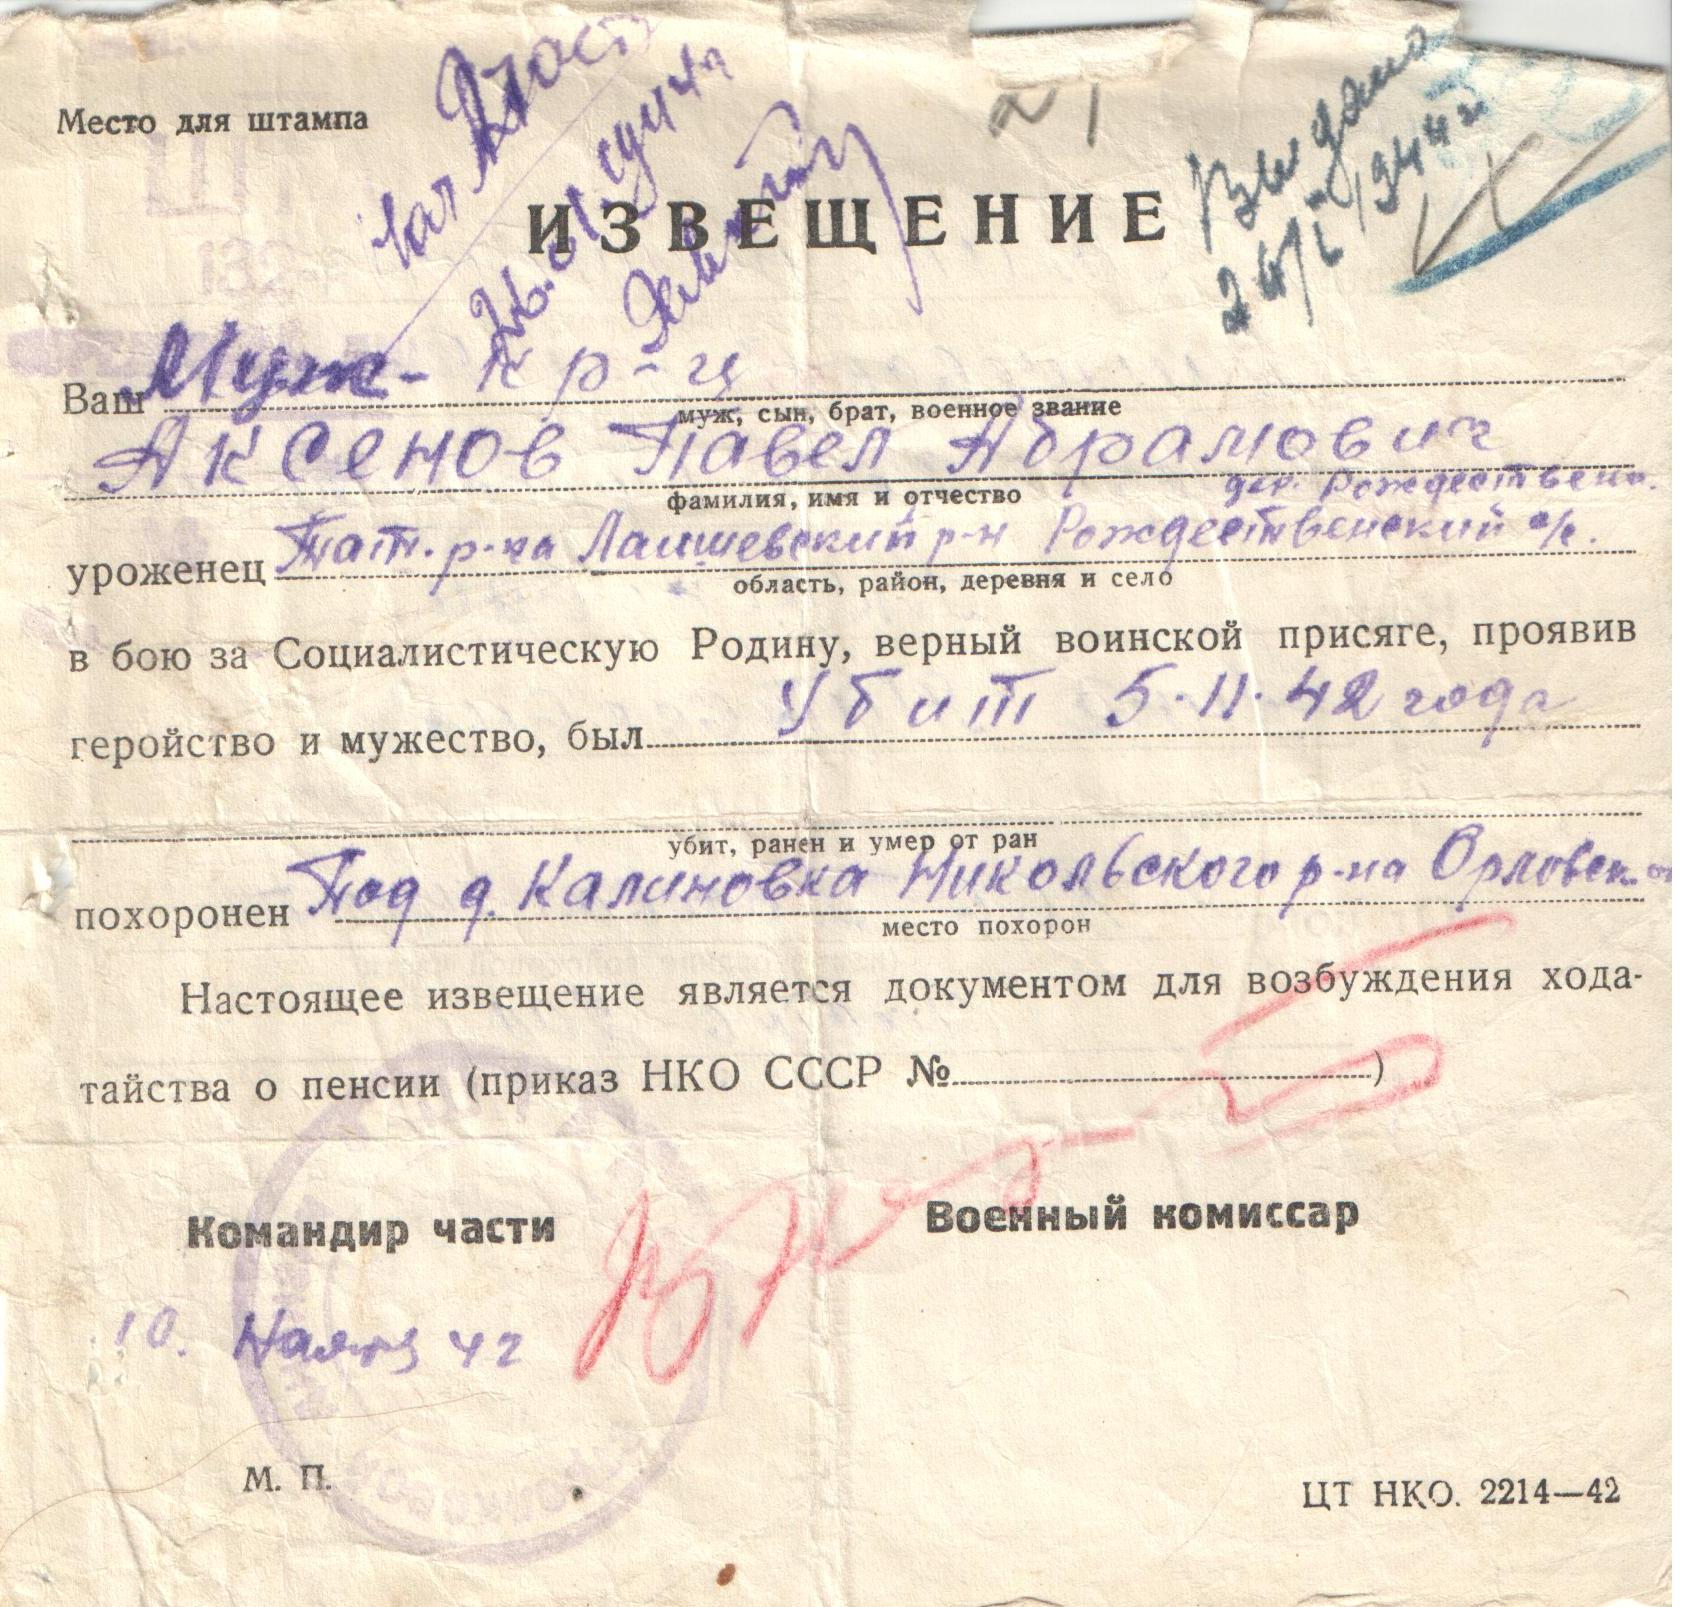 Место для штампа
ИЗВЕЩЕНИЕ
Выдано
Ваш Муж - кр-ц
муж, сын, брат, военное звание
Аксенов Павел Абрамович
фамилия, имя и отчество
дер. Рождествено.
уроженец Тат. р-ка Лаишевский р-н Рождественский с/с.
область, район, деревня и село
в бою за Социалистическую Родину, верный воинской присяге, проявив
геройство и мужество, был Убит 5.11.42 года
убит, ранен и умер от ран
похоронен Под д. Калиновка Никольского р-на Орловск.
место похорон
Настоящее извещение является документом для возбуждения хода-
тайства о пенсии (приказ НКО СССР №)
Командир части
Военный комиссар
10. Ноября 42
М. П.
ЦТ НКО. 2214—42